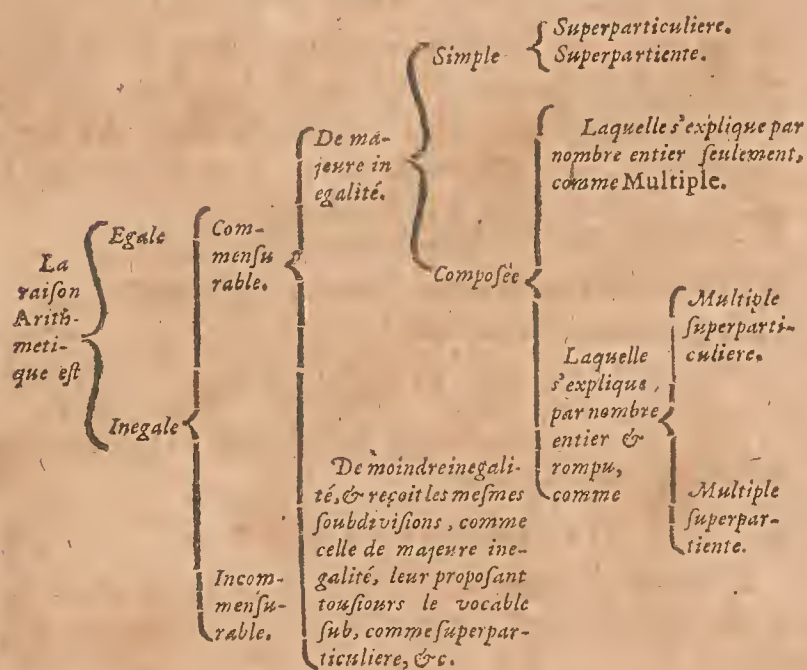 La
raiſon
Arith-
meti-
que eſt
Egale
Inegale
Com-
menſu
rable.
Incom-
menſu-
rable.
De ma-
jeure in
egalité.
De moindreinegali-
té, & reçoit les meſmes
ſoubdiviſions, comme
celle de majeure ine-
galité, leur propoſant
touſiours le vocable
ſub, comme ſuperpar-
ticuliere, &c.
Simple
Compoſée
Superparticuliere.
Superpartiente.
Laquelle s'explique par
nombre entier ſeulement,
comme Multiple.
Laquelle
s'explique
par nombre
entier &
rompu,
comme
Multiple
ſuperparti-
culiere.
Multiple
ſuperpar-
tiente.